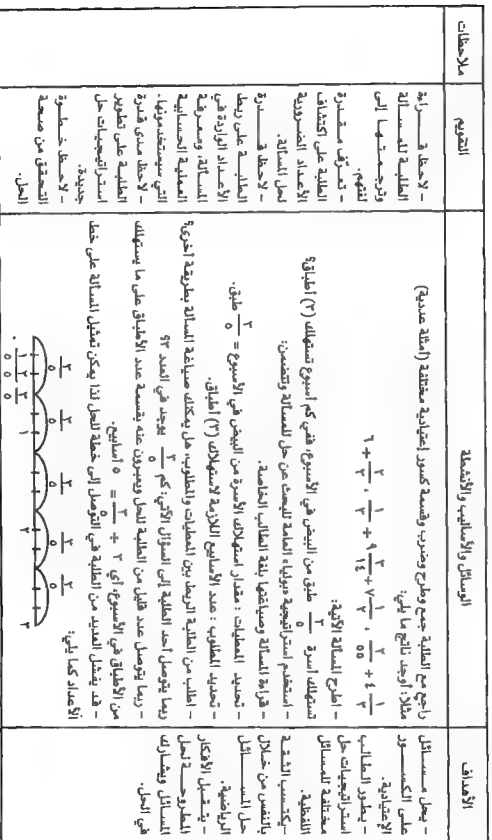 الأهداف
يحل مسائل
على الكسور
الإعتيادية.
- يطور الطالب
استراتيجيات حل
مختلفة للمسائل
اللفظية.
- يكتسب الثقة
بالنفس من خلال
حل المسائل
الرياضية.
- يتقبل الأفكار
المطروحة لحل
المسائل ويشارك
في الحل.
الوسائل والأساليب والأنشطة
راجع مع الطلبة جمع وطرح وضرب وقسمة كسور إعتيادية مختلفة (أمثلة عددية)
مثلا: أوجد ناتج ما يلي:
- اطرح المسألة الآتية:
تستهلك أسرة ٣/٥ طبق من البيض في الأسبوع، ففي كم أسبوع تستهلك (٣) أطباق؟
- استخدم استراتيجية «بوليا» العامة للبحث عن حل للمسألة وتتضمن:
- قراءة المسألة وصياغتها بلغة الطالب الخاصة.
- تحديد المعطيات : مقدار استهلاك الأسرة من البيض في الأسبوع = ٣/٥ طبق.
- تحديد المطلوب : عدد الأسابيع اللازمة لاستهلاك (٣) أطباق.
- اطلب من الطلبة الربط بين المعطيات والمطلوب، هل يمكنك صياغة المسألة بطريقة أخرى؟
ربما يتوصل أحد الطلبة إلى السؤال الآتي: كم ٣/٥ يوجد في العدد ٣؟
- ربما يتوصل عدد قليل من الطلبة للحل ويعبرون عنه بقسمة عدد الأطباق على ما يستهلك
من الأطباق في الأسبوع، أي ٣ ÷ ٣/٥ = ٥ أسابيع.
- قد يفشل العديد من الطلبة في التوصل إلى خطة للحل لذا يمكن تمثيل المسألة على خط
الأعداد كما يلي:
التقويم
- لاحظ قراءة
الطلبة للمسألة
وترجمتها إلى
لغتهم.
- تعرف مقدرة
الطلبة على اكتشاف
الأعداد الضرورية
لحل المسألة.
- لاحظ قدرة
الطلبة على ربط
الأعداد الواردة في
المسألة، ومعرفة
العملية الحسابية
التي سيستخدمونها.
- لاحظ مدى قدرة
الطلبة على تطوير
استراتيجيات حل
جديدة.
- لاحظ خطوة
التحقق من صحة
الحل.
ملاحظات